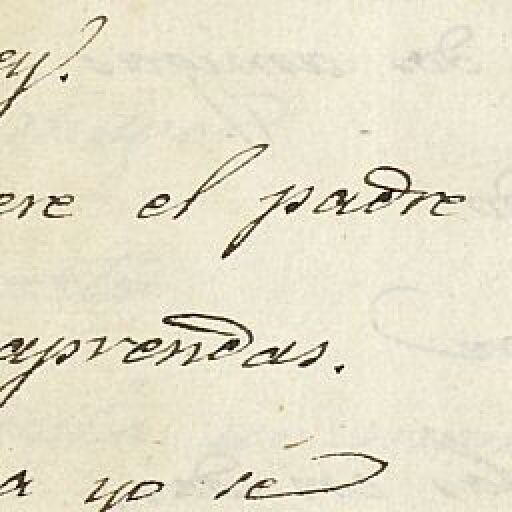 ey?
ere el padre
aprendas.
a yo sé